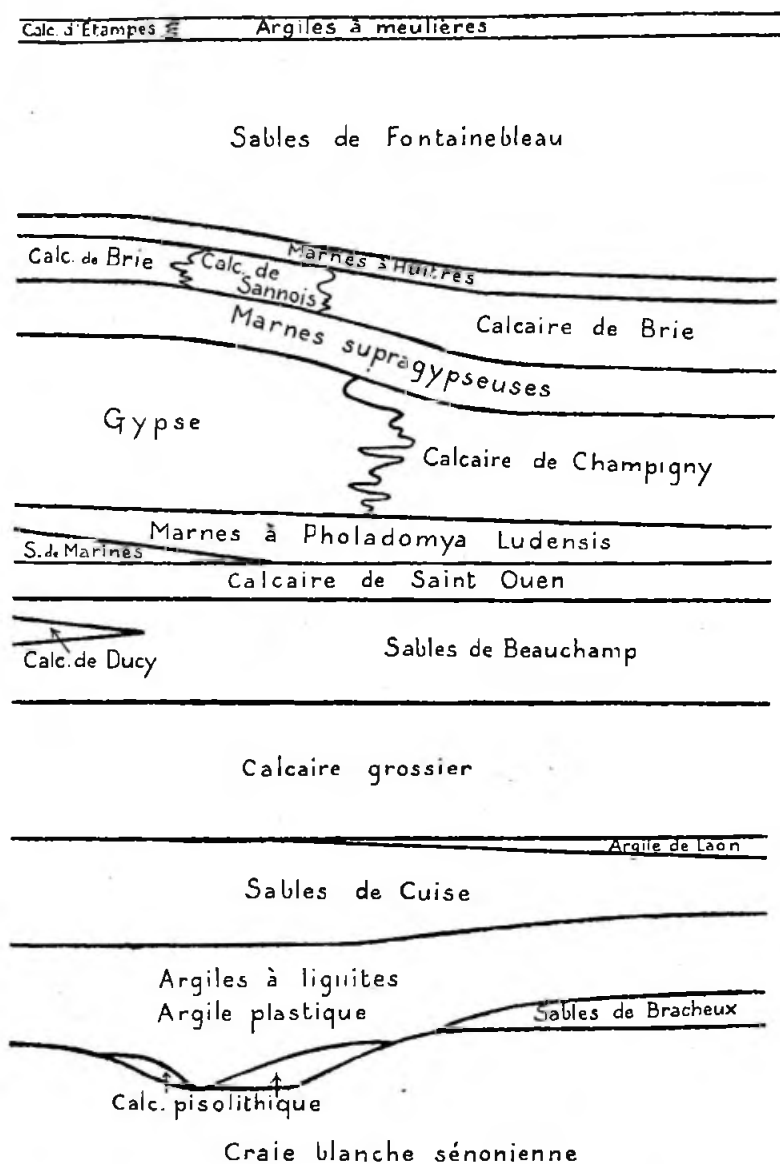 Calc. d'Étampes
Argiles à meulières
Sables de Fontainebleau
Marnes à Huitres
Calc. de Brie
Calc. de
Sannois
Calcaire de Brie
Marnes supragypseuses
Gypse
Calcaire de Champigny
Marnes à Pholadomya Ludensis
S. de Marines
Calcaire de Saint Ouen
Calc. de Ducy
Sables de Beauchamp
Calcaire grossier
Argile de Laon
Sables de Cuise
Argiles à lignites
Argile plastique
Sables de Bracheux
Calc. pisolithique
Craie blanche sénonienne